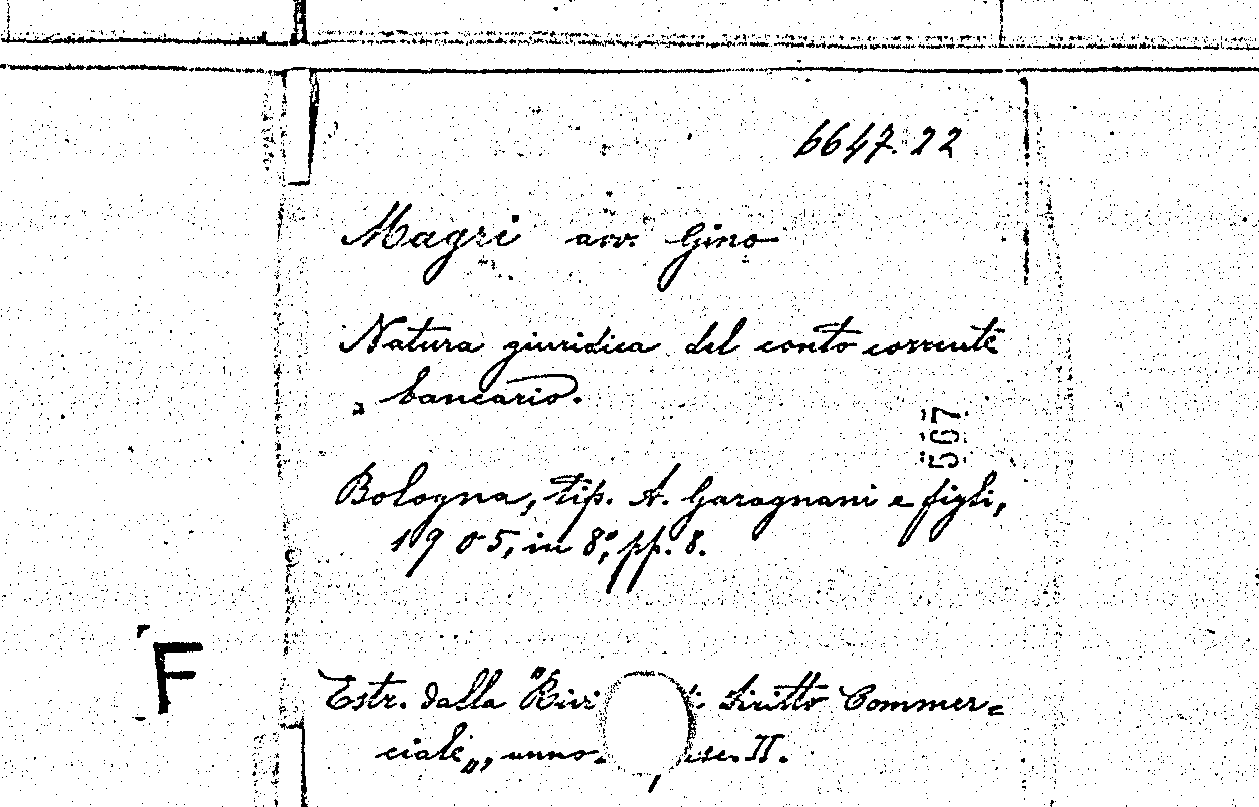 6647.22
Magri avv. Gino
Natura giuridica del conto corrente
bancario.
567
Bologna, tip. A. Garagnani e figli,
1905, in 8°, pp. 8.
F
Estr. dalla "Rivi di Diritto Commer=
ciale„, anno II.